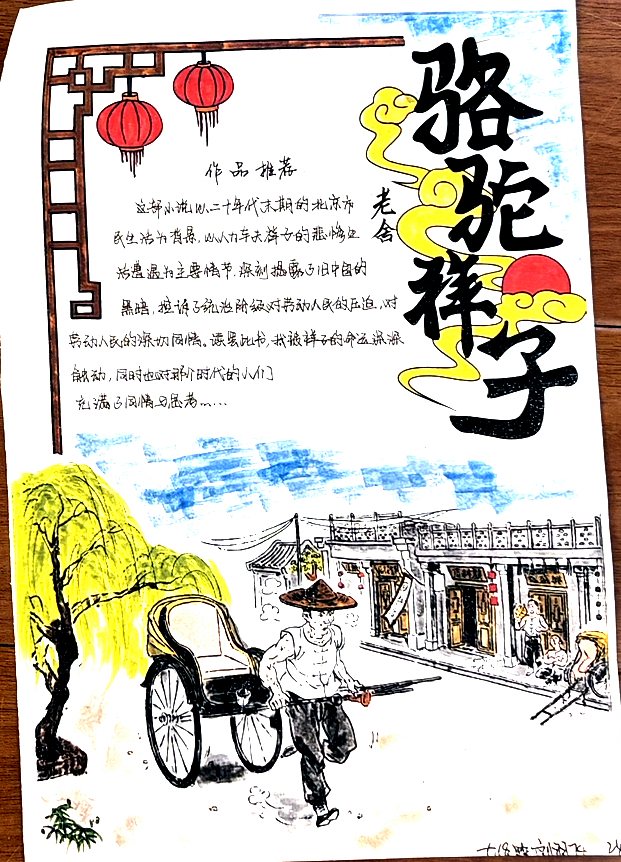 骆驼祥子
老舍
作品推荐
这部小说以二十年代末期的北京市
民生活为背景,以人力车夫祥子的悲惨生
活遭遇为主要情节,深刻揭露了旧中国的
黑暗,控诉了统治阶级对劳动人民的压迫,对
劳动人民的深切同情。读罢此书,我被祥子的命运深深
触动,同时也对那个时代的人们
充满了同情与思考……